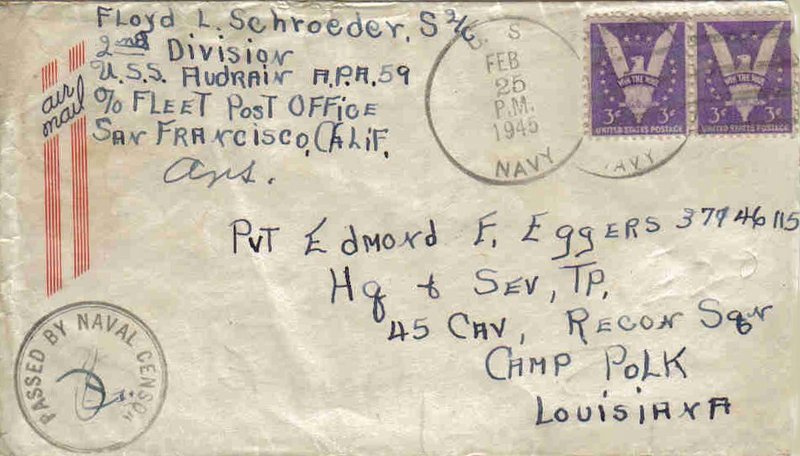 Floyd L. Schroeder, S 2/c
2nd Division
U.S.S. Audrain A.P.A. 59
c/o Fleet Post Office
San Francisco, Calif.
Ans.
air
mail
U. S.
FEB
25
P.M.
1945
NAVY
NAVY
WIN THE WAR
3¢ 3¢
UNITED STATES POSTAGE
WIN THE WAR
3¢ 3¢
UNITED STATES POSTAGE
Pvt Edmond F. Eggers 37746115
Hq & Sev, Tp,
45 Cav, Recon Sqn
Camp Polk
Louisiana
PASSED BY NAVAL CENSOR